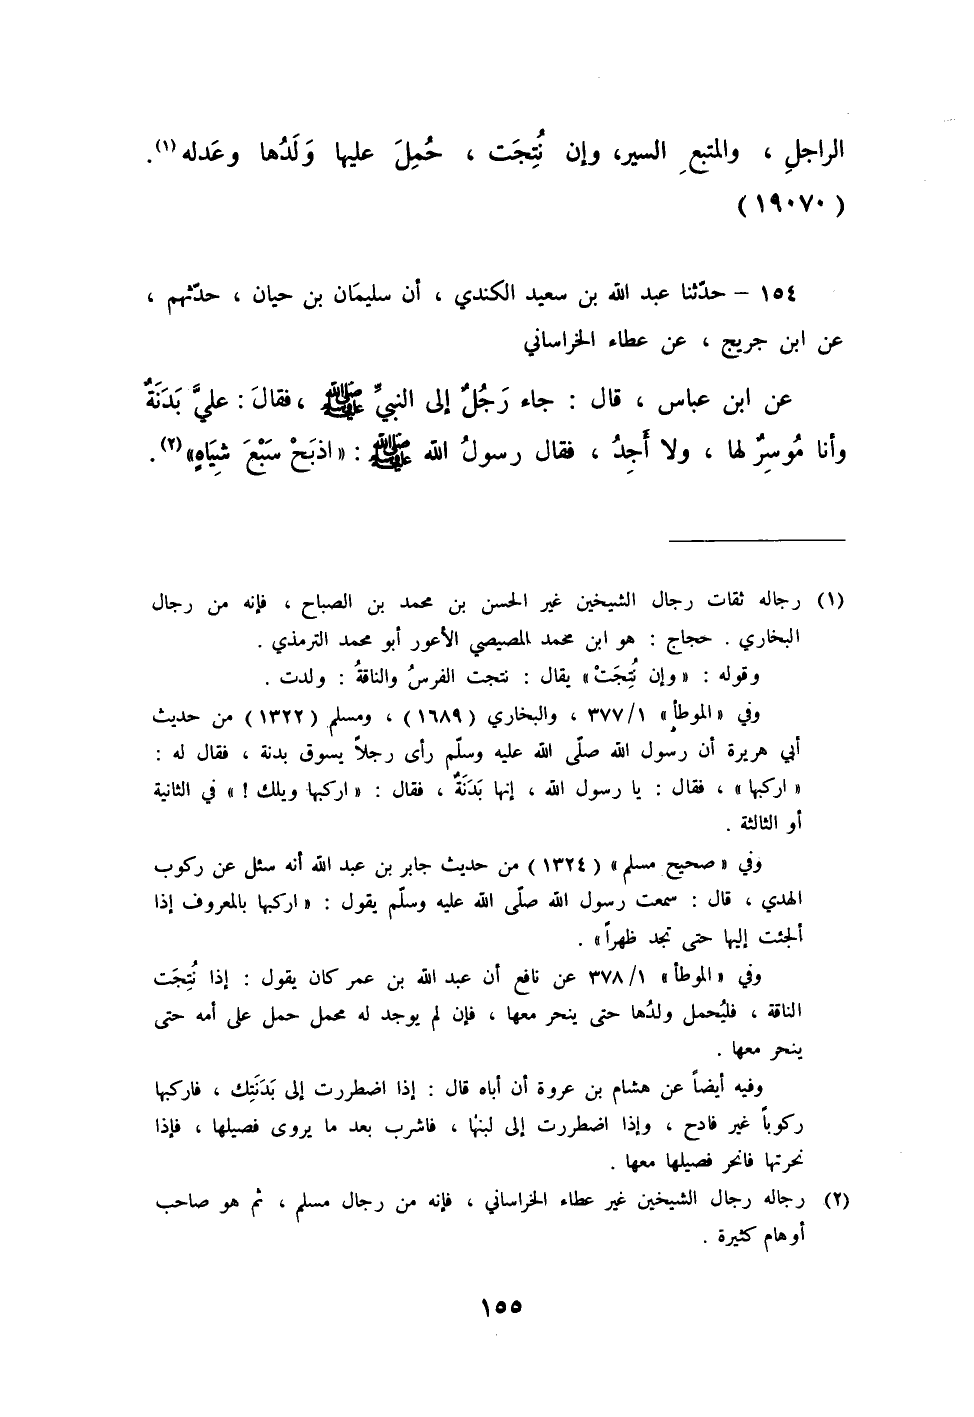 الراجلِ ، والمتبعِ السير، وإن نُتِجَت ، حُمِلَ عليها وَلَدُها وعَدله (١).
(١٩٠٧٠)
١٥٤ – حدّثنا عبد الله بن سعيد الكندي ، أن سليمَان بن حيان ، حدّثهم ،
عن ابن جريج ، عن عطاء الخراساني
عن ابن عباس ، قال : جاء رَجُلٌ إلى النبيِّ ﷺ ، فقالَ : عليَّ بَدَنَةٌ
وأنا مُوسِرٌ لها ، ولا أَجِدُ ، فقال رسولُ الله ﷺ : «اذبَحْ سَبْعَ شِيَاهٍ»(٢) .
(١) رجاله ثقات رجال الشيخين غير الحسن بن محمد بن الصباح ، فإنه من رجال
البخاري . حجاج : هو ابن محمد المصيصي الأعور أبو محمد الترمذي .
وقوله : «وإن نُتِجَتْ» يقال : نتجت الفرسُ والناقةُ : ولدت .
وفي «الموطأ» ٣٧٧/١ ، والبخاري (١٦٨٩) ، ومسلم (١٣٢٢) من حديث
أبي هريرة أن رسول الله صلّى الله عليه وسلّم رأى رجلاً يسوق بدنة ، فقال له :
«اركبها» ، فقال : يا رسول الله ، إنها بَدَنَةٌ ، فقال : «اركبها ويلك !» في الثانية
أو الثالثة .
وفي «صحيح مسلم» (١٣٢٤) من حديث جابر بن عبد الله أنه سئل عن ركوب
الهدي ، قال : سمعت رسول الله صلّى الله عليه وسلّم يقول : «اركبها بالمعروف إذا
ألجئت إليها حتى تجد ظهراً» .
وفي «الموطأ» ٣٧٨/١ عن نافع أن عبد الله بن عمر كان يقول : إذا نُتِجَت
الناقة ، فليُحمل ولدُها حتى ينحر معها ، فإن لم يوجد له محمل حمل على أمه حتى
ينحر معها .
وفيه أيضاً عن هشام بن عروة أن أباه قال : إذا اضطررت إلى بَدَنَتِك ، فاركبها
ركوباً غير فادح ، وإذا اضطررت إلى لبنها ، فاشرب بعد ما يروى فصيلها ، فإذا
نحرتها فانحر فصيلها معها .
(٢) رجاله رجال الشيخين غير عطاء الخراساني ، فإنه من رجال مسلم ، ثم هو صاحب
أوهام كثيرة .
١٥٥